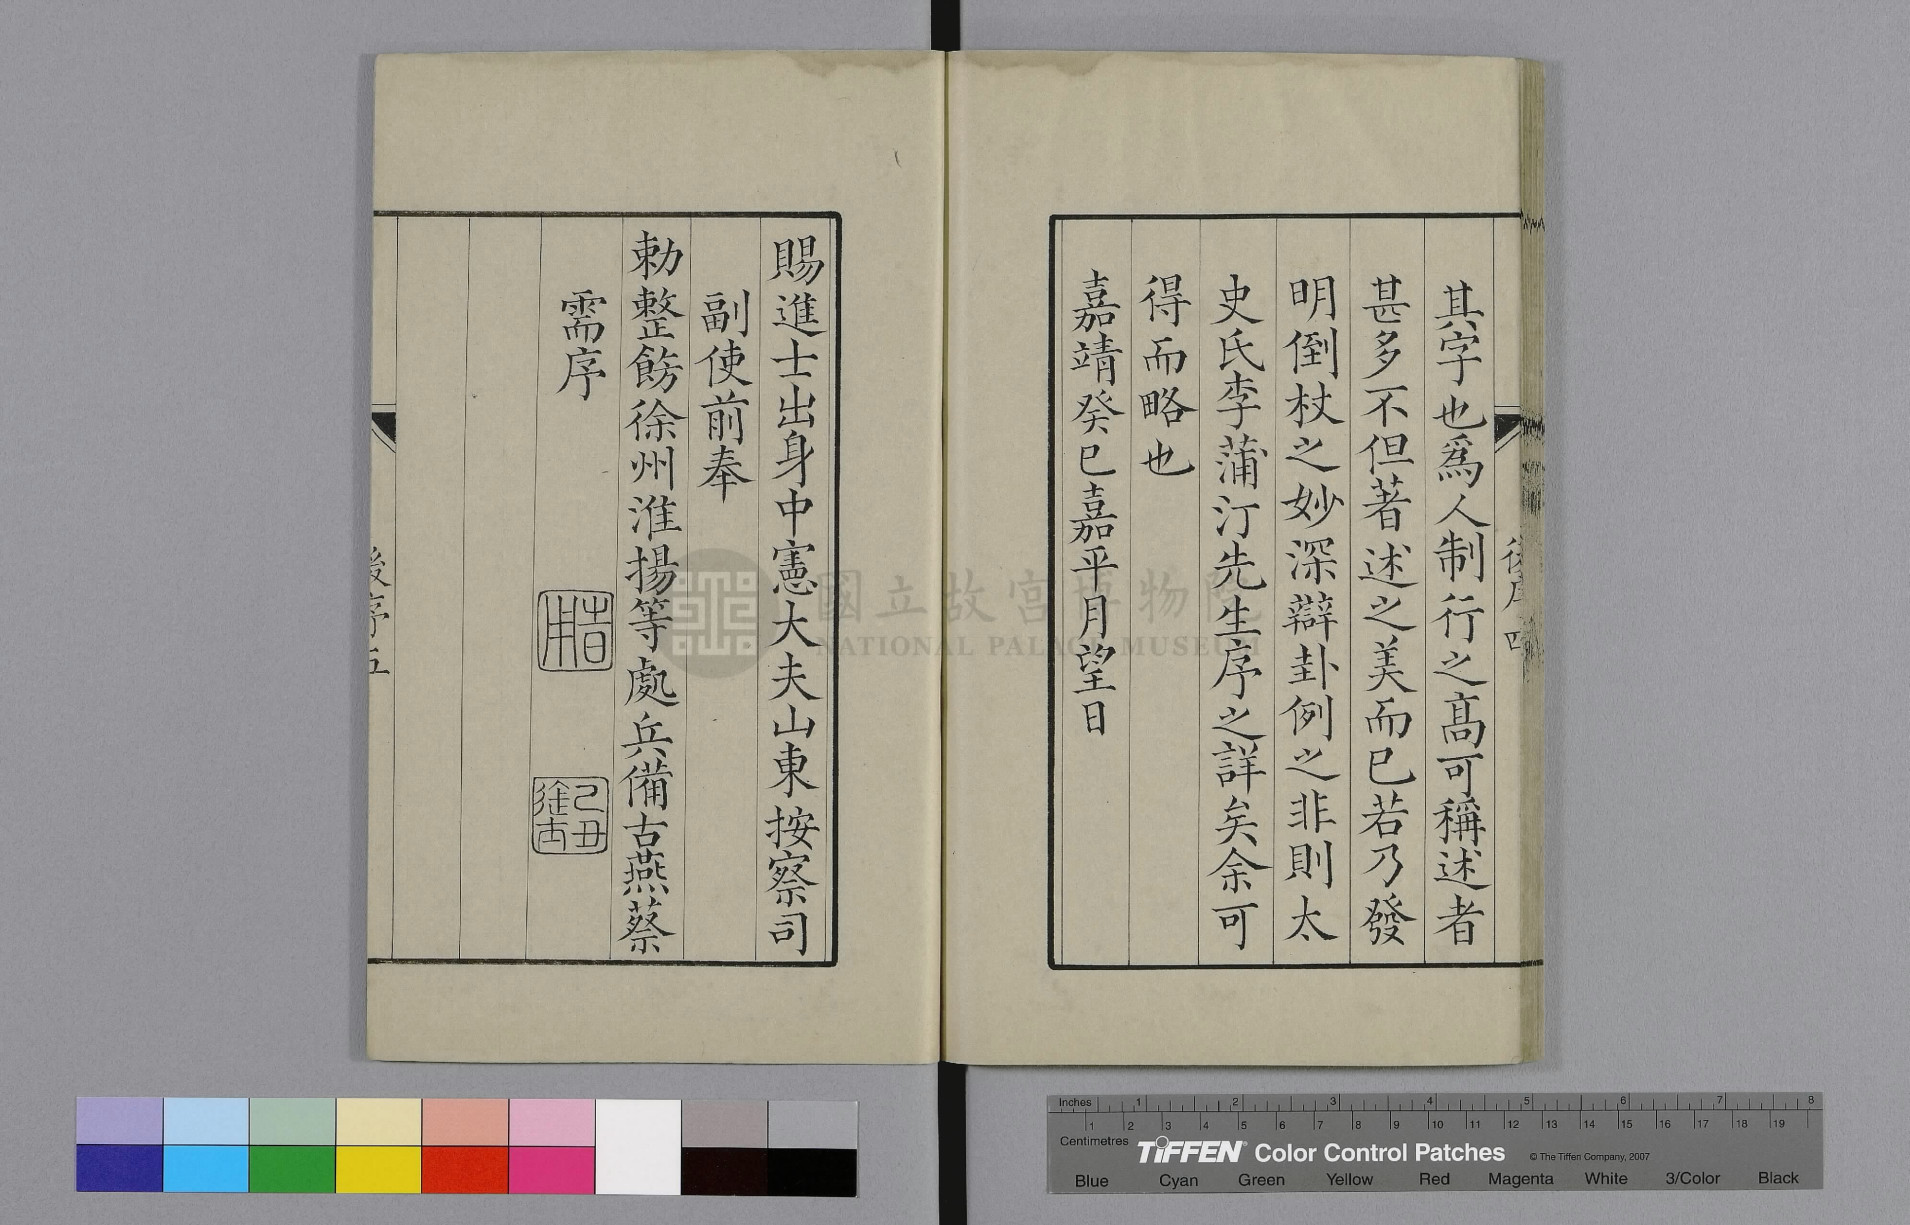 其字也爲人制行之髙可稱述者
甚多不但著述之美而已若乃發
明倒杖之妙深辯卦例之非則太
史氏李蒲汀先生序之詳矣余可
得而略也
嘉靖癸巳嘉平月望日
後序 四
賜進士出身中憲大夫山東按察司
副使前奉
勅整飭徐州淮揚等處兵備古燕蔡
需序
己丑進士
後序五
國立故宮博物院
NATIONAL PALACE MUSEUM
Inches 1 2 3 4 5 6 7 8
1 2 3 4 5 6 7 8 9 10 11 12 13 14 15 16 17 18 19
Centimetres
TIFFEN® Color Control Patches © The Tiffen Company, 2007
Blue Cyan Green Yellow Red Magenta White 3/Color Black